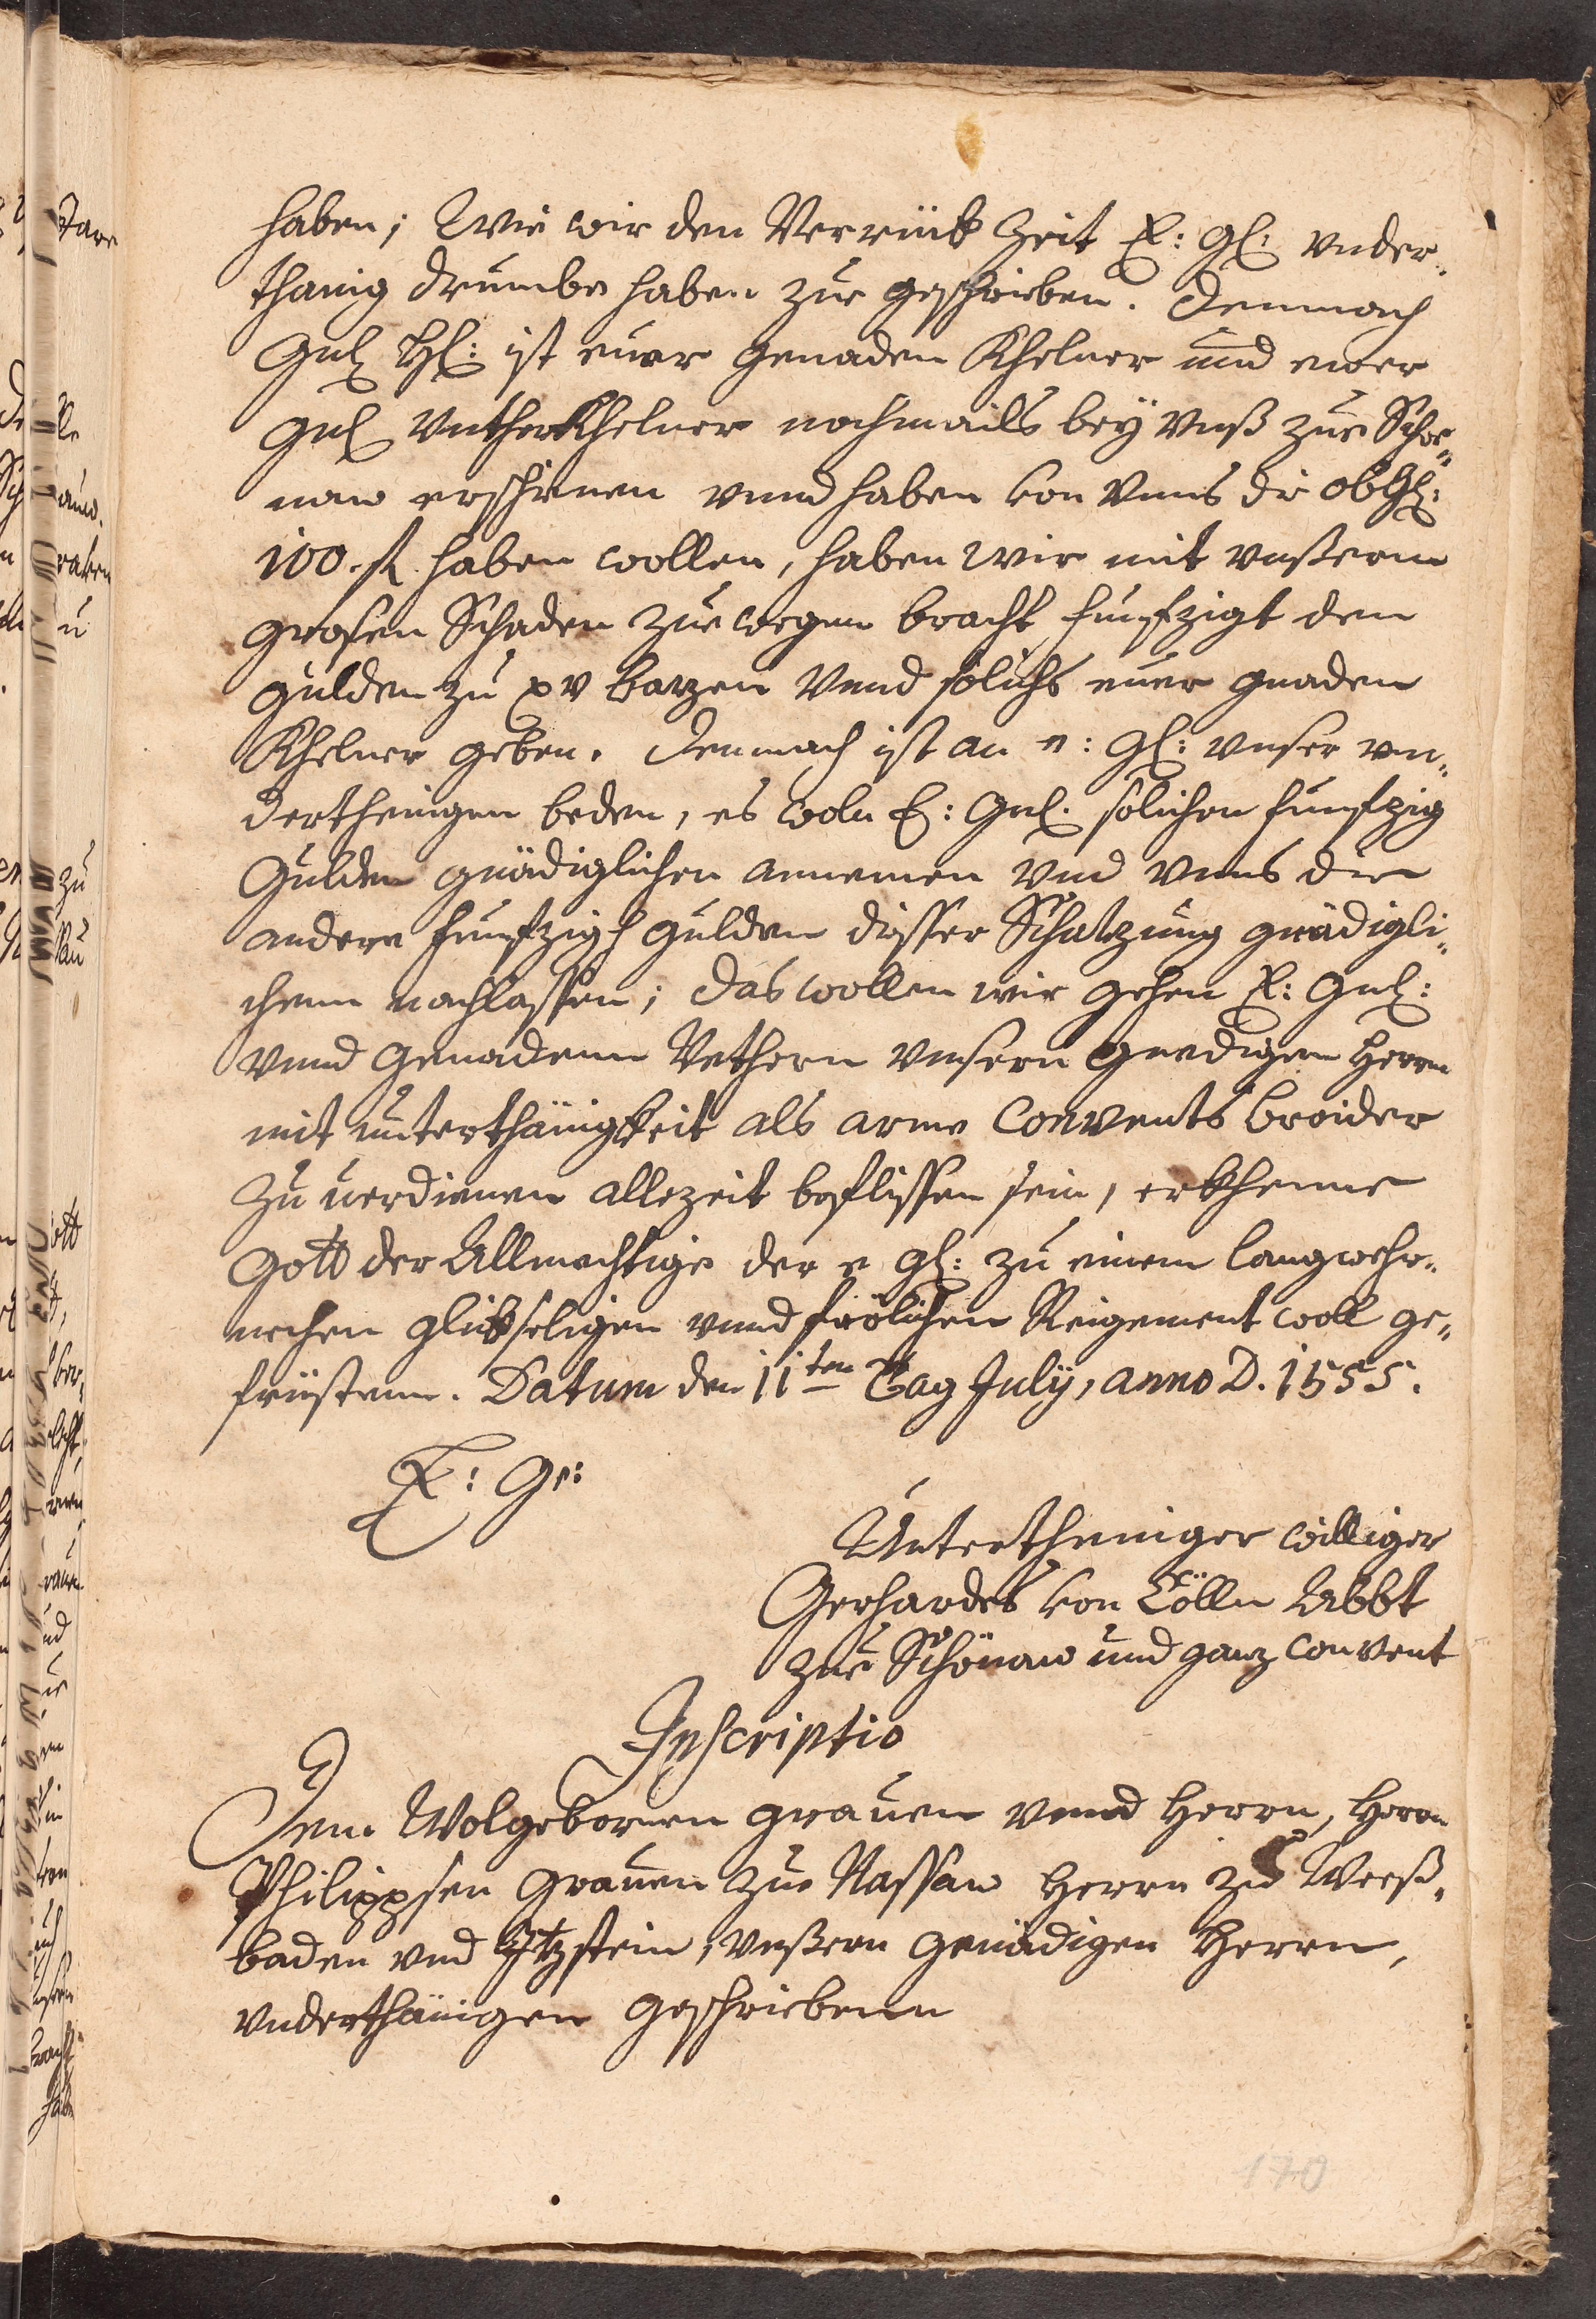 haben; Wie wir den Verrückt Zeit E: Gl: vnder„
thanig drumbe haben zue geschrieben. Demnach
Gnl Hl: ist euer Genaden Khelner und ewer
Gnl Vntherkhelner nochmails beÿ vnß zue Schoe„
naw erschinen vnnd haben von vnns die obgl:
100. fl. haben wollen, haben wir mit vnßerem
grosen Schaden zue wegen bracht funfzigt den
gulden zu xv batzen Vnnd solichs euer gnaden
Khelner geben. Demnach ist an e: Gl: vnser vn„
derthenigen beden, es woln E: Gnl. solichen funfzig
Gulden gnädiglichen annemen vnd vnns die
andere funfzigh gulden disser Schatzung gnädigli„
chenn nachlassen; das wollen wir gehen E: Gnl:
vnnd Genadenn Vethern vnsern gnedigen Herrn
mit unterthänigkeit als arme Convents broider
Zu uerdienen allezeit beflissen sein, erkhenne
Gott der Allmechtige der e Gl: zu einem langwehr„
nechen glickseligen vnnd frölichen Reigement woll ge„
früstenn. Datum den 11ten Tag Julÿ, anno D. 1555.
E: Ge:
Untertheniger williger
Gerhardes von Cölln Abbt
zue Schönaw und ganz Convent
Inscriptio
Dem Wolgebornen grauen vnnd Herrn, Herrn
Philippsen Grauen zue Nassaw Herrn zu Weeß„
baden vnd Itzstein, vnßern Genädigen Herrn,
vnderthänigen geschriebenn
170